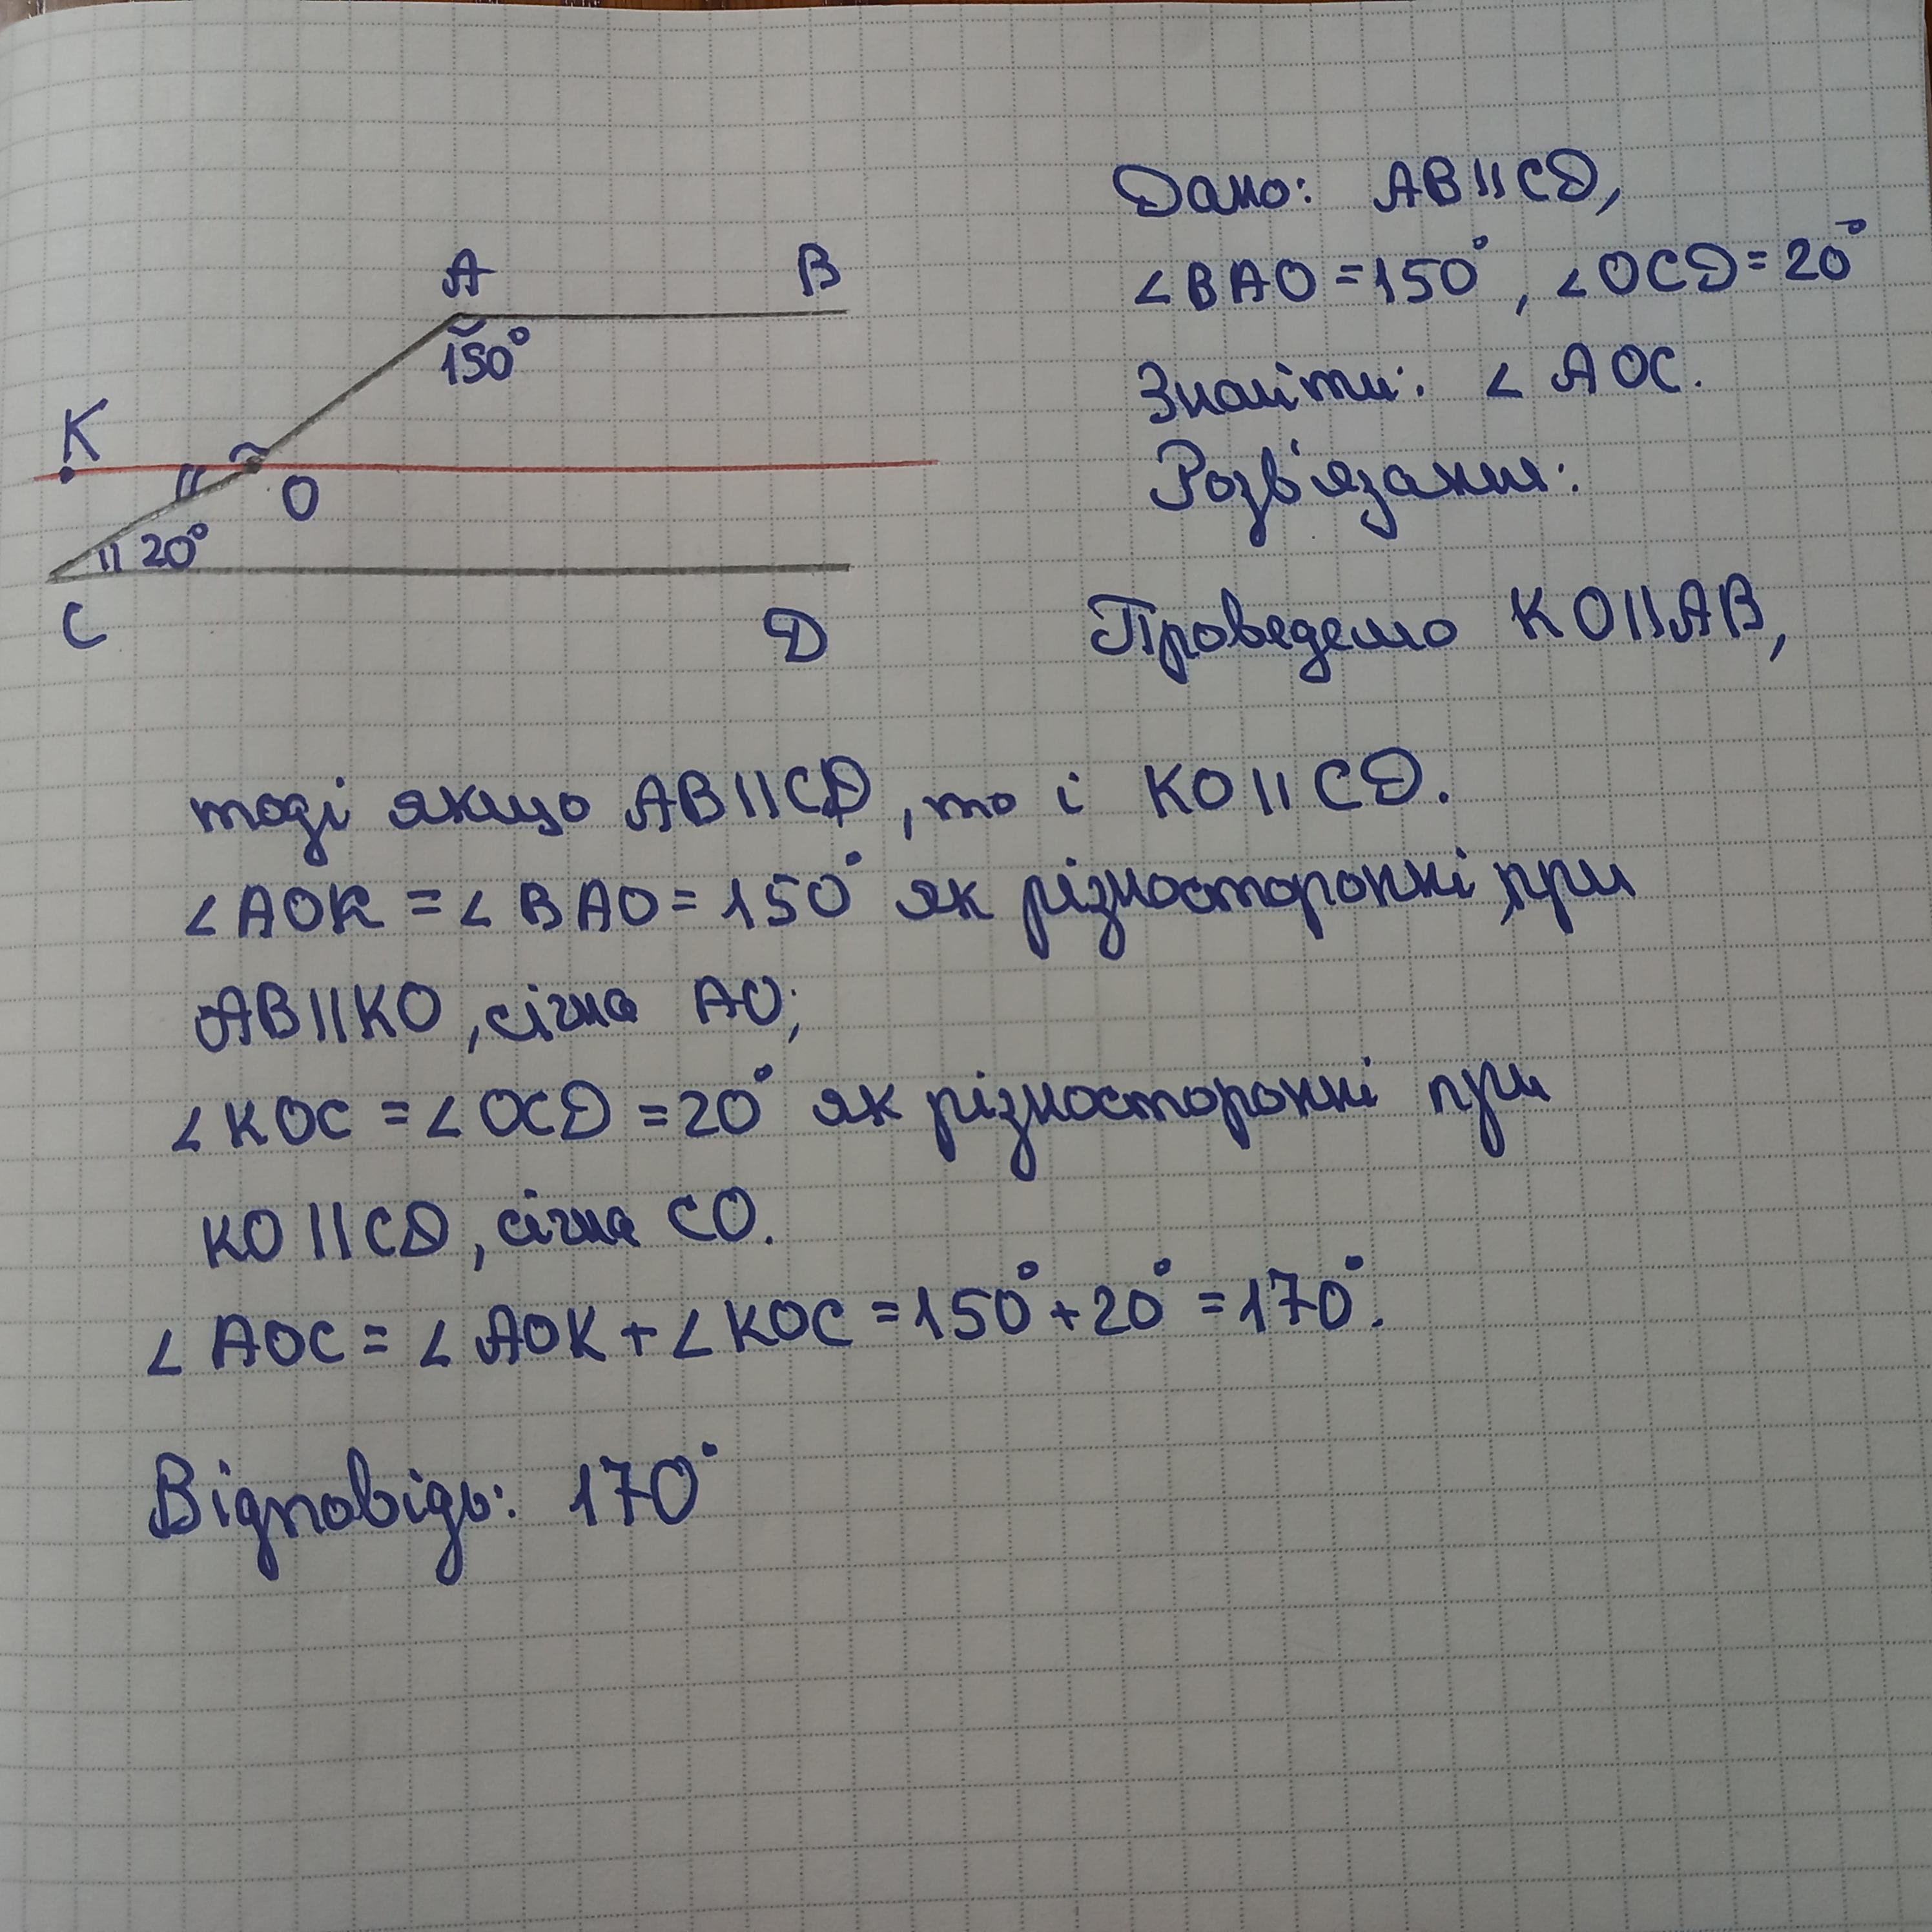 A
B
150°
K
O
20°
C
D
Дано: AB||CD,
∠BAO=150°, ∠OCD=20°
Знайти: ∠AOC.
Розв'язання:
Проведемо KO||AB,
тоді якщо AB||CD, то і KO||CD.
∠AOK=∠BAO=150° як різносторонні при
AB||KO, січна AO;
∠KOC=∠OCD=20° як різносторонні при
KO||CD, січна CO.
∠AOC=∠AOK+∠KOC=150°+20°=170°.
Відповідь: 170°